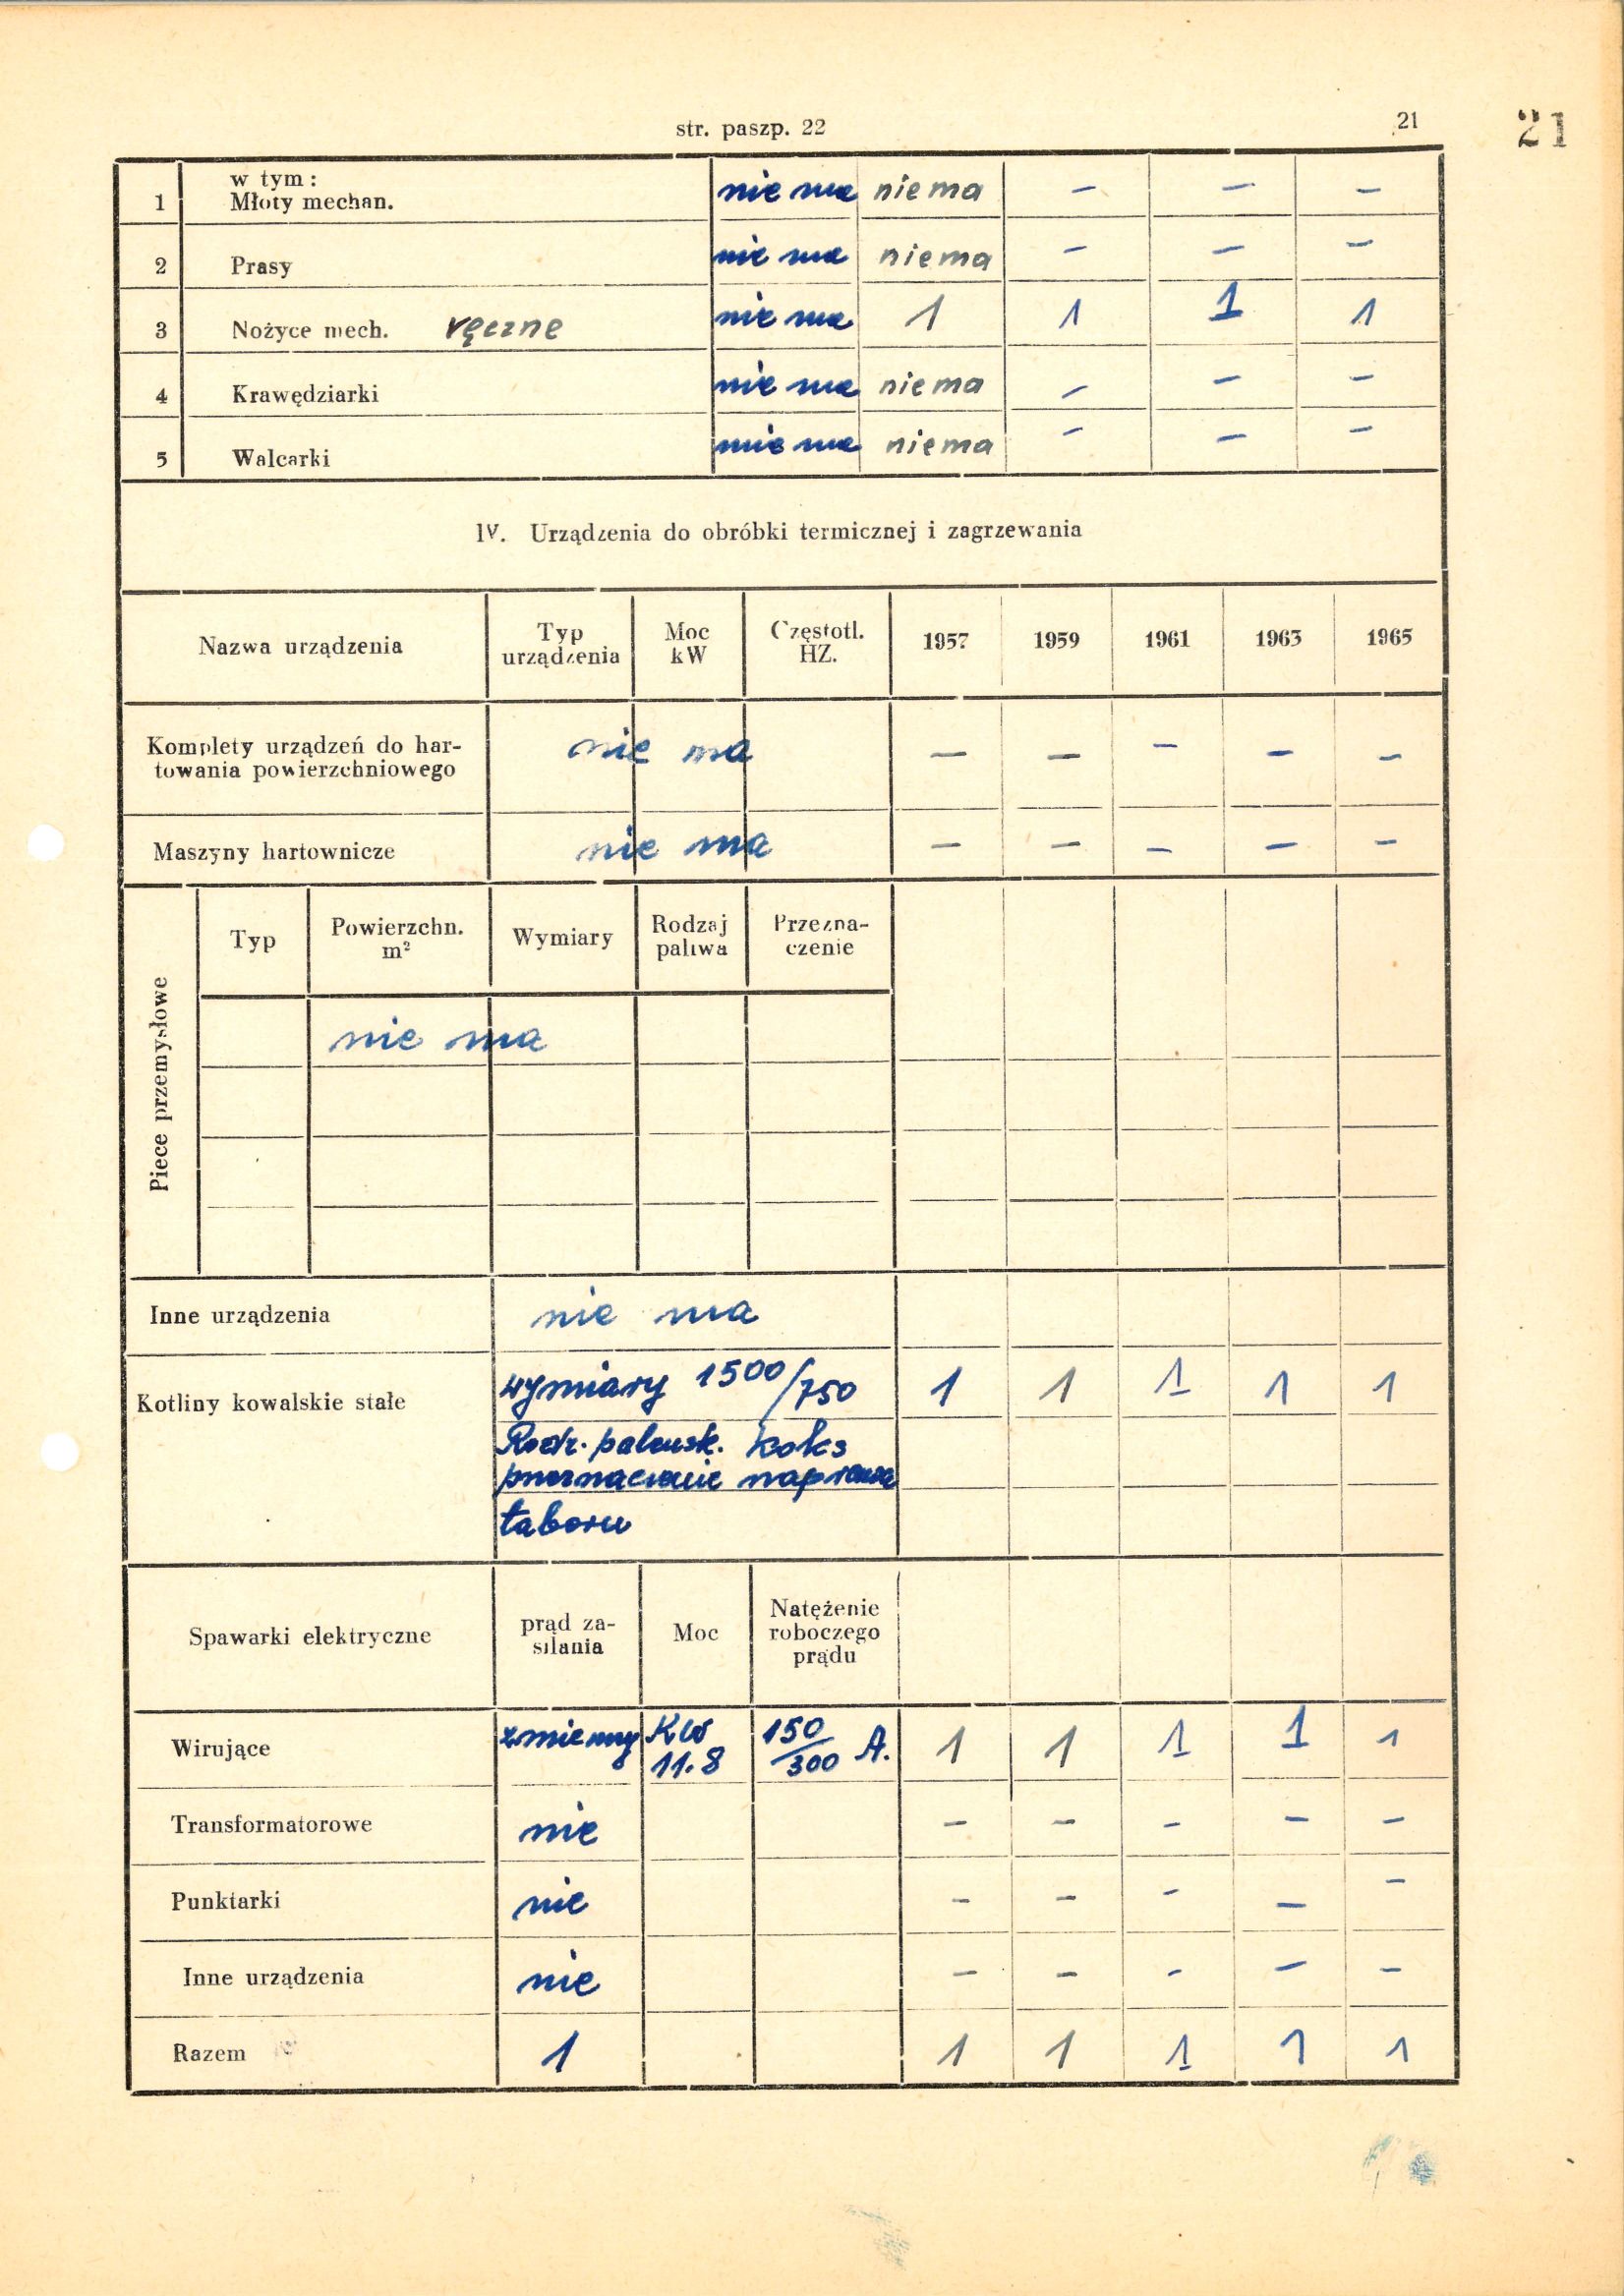 str. paszp. 22
21
21
w tym:
1 Młoty mechan. nie ma nie ma – – –
2 Prasy nie ma nie ma – – –
3 Nożyce mech. ręczne nie ma 1 1 1 1
4 Krawędziarki nie ma nie ma – – –
5 Walcarki nie ma nie ma – – –
IV. Urządzenia do obróbki termicznej i zagrzewania
Nazwa urządzenia
Typ
urządzenia
Moc
kW
Częstotl.
HZ.
1957 1959 1961 1963 1965
Komplety urządzeń do har-
towania powierzchniowego
nie ma – – – – –
Maszyny hartownicze nie ma – – – – –
Piece przemysłowe
Typ
Powierzchn.
m²
Wymiary
Rodzaj
paliwa
Przezna-
czenie
nie ma
Inne urządzenia nie ma
Kotliny kowalskie stałe
wymiary 1500/750 1 1 1 1 1
Rodz. palensk. koks
przeznaczenie naprawa
taboru
Spawarki elektryczne
prąd za-
silania
Moc
Natężenie
roboczego
prądu
Wirujące zmienny KW 11.8 150/300 A. 1 1 1 1 1
Transformatorowe nie – – – – –
Punktarki nie – – – – –
Inne urządzenia nie – – – – –
Razem 1 1 1 1 1 1